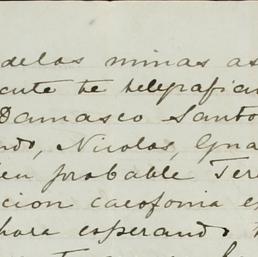 de las minas as
cute te telegrafiar
Damasco Santo
ndo, Nicolas, Gna
ien probable Ter
cion cacofonia e
hora esperando t